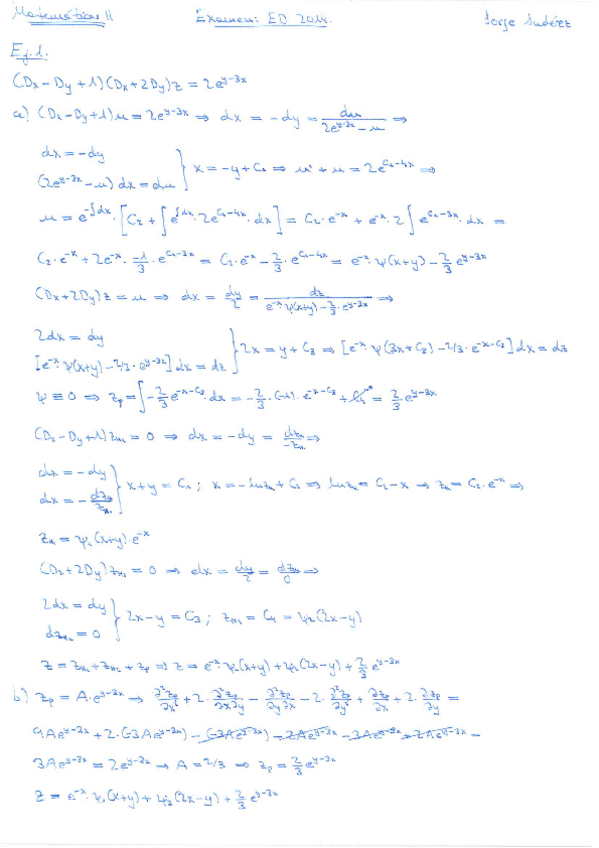 Matemáticas II Examen: ED 2014. Jorge
Ej. 1.
(Dx - Dy + 1)(Dx + 2Dy)z = 2e^{y-3x}
a) (Dx - Dy + 1)u = 2e^{y-3x} ⇒ dx = -dy = du/(2e^{y-3x} - u) ⇒
dx = -dy
(2e^{y-3x} - u) dx = du } x = -y + C₁ ⇒ u' + u = 2e^{C₁-4x} ⇒
u = e^{-∫dx} · [C₂ + ∫e^{∫dx} · 2e^{C₁-4x} · dx] = C₂ · e^{-x} + e^{-x} · 2∫e^{C₁-3x} · dx =
C₂ · e^{-x} + 2e^{-x} · -1/3 · e^{C₁-3x} = C₂ · e^{-x} - 2/3 · e^{C₁-4x} = e^{-x} · ψ(x+y) - 2/3 e^{y-3x}
(Dx + 2Dy)z = u ⇒ dx = dy/2 = dz/(e^{-x} · ψ(x+y) - 2/3 · e^{y-3x}) ⇒
2dx = dy
[e^{-x} · ψ(x+y) - 2/3 · e^{y-3x}] dx = dz } 2x = y + C₃ ⇒ [e^{-x} · ψ(3x + C₃) - 2/3 · e^{-x-C₃}] dx = dz
ψ ≡ 0 ⇒ zp = ∫ -2/3 e^{-x-C₃} · dx = -2/3 · (-1) · e^{-x-C₃} + = 2/3 e^{y-3x}
(Dx - Dy + 1)z_{H1} = 0 ⇒ dx = -dy = dz_{H1}/-z_{H1} ⇒
dx = -dy
dx = -dz_{H1}/z_{H1} } x + y = C₁ ; x = -ln z_{H1} + C₂ ⇒ ln z_{H1} = C₂ - x ⇒ z_{H1} = C₂ · e^{-x} ⇒
z_{H1} = ψ₁(x+y) · e^{-x}
(Dx + 2Dy)z_{H2} = 0 ⇒ dx = dy/2 = dz_{H2}/0 ⇒
2dx = dy
dz_{H2} = 0 } 2x - y = C₃ ; z_{H2} = C₄ = ψ₂(2x-y)
z = z_{H1} + z_{H2} + zp ⇒ z = e^{-x} · ψ₁(x+y) + ψ₂(2x-y) + 2/3 e^{y-3x}
b) zp = A · e^{y-3x} ⇒ ∂²zp/∂x² + 2 · ∂²zp/∂x∂y - ∂²zp/∂y∂x - 2 · ∂²zp/∂y² + ∂zp/∂x + 2 · ∂zp/∂y =
9Ae^{y-3x} + 2 · (-3Ae^{y-3x}) - (-3Ae^{y-3x}) - 2Ae^{y-3x} - 3Ae^{y-3x} + 2Ae^{y-3x} =
3Ae^{y-3x} = 2e^{y-3x} ⇒ A = 2/3 ⇒ zp = 2/3 e^{y-3x}
z = e^{-x} · ψ₁(x+y) + ψ₂(2x-y) + 2/3 e^{y-3x}